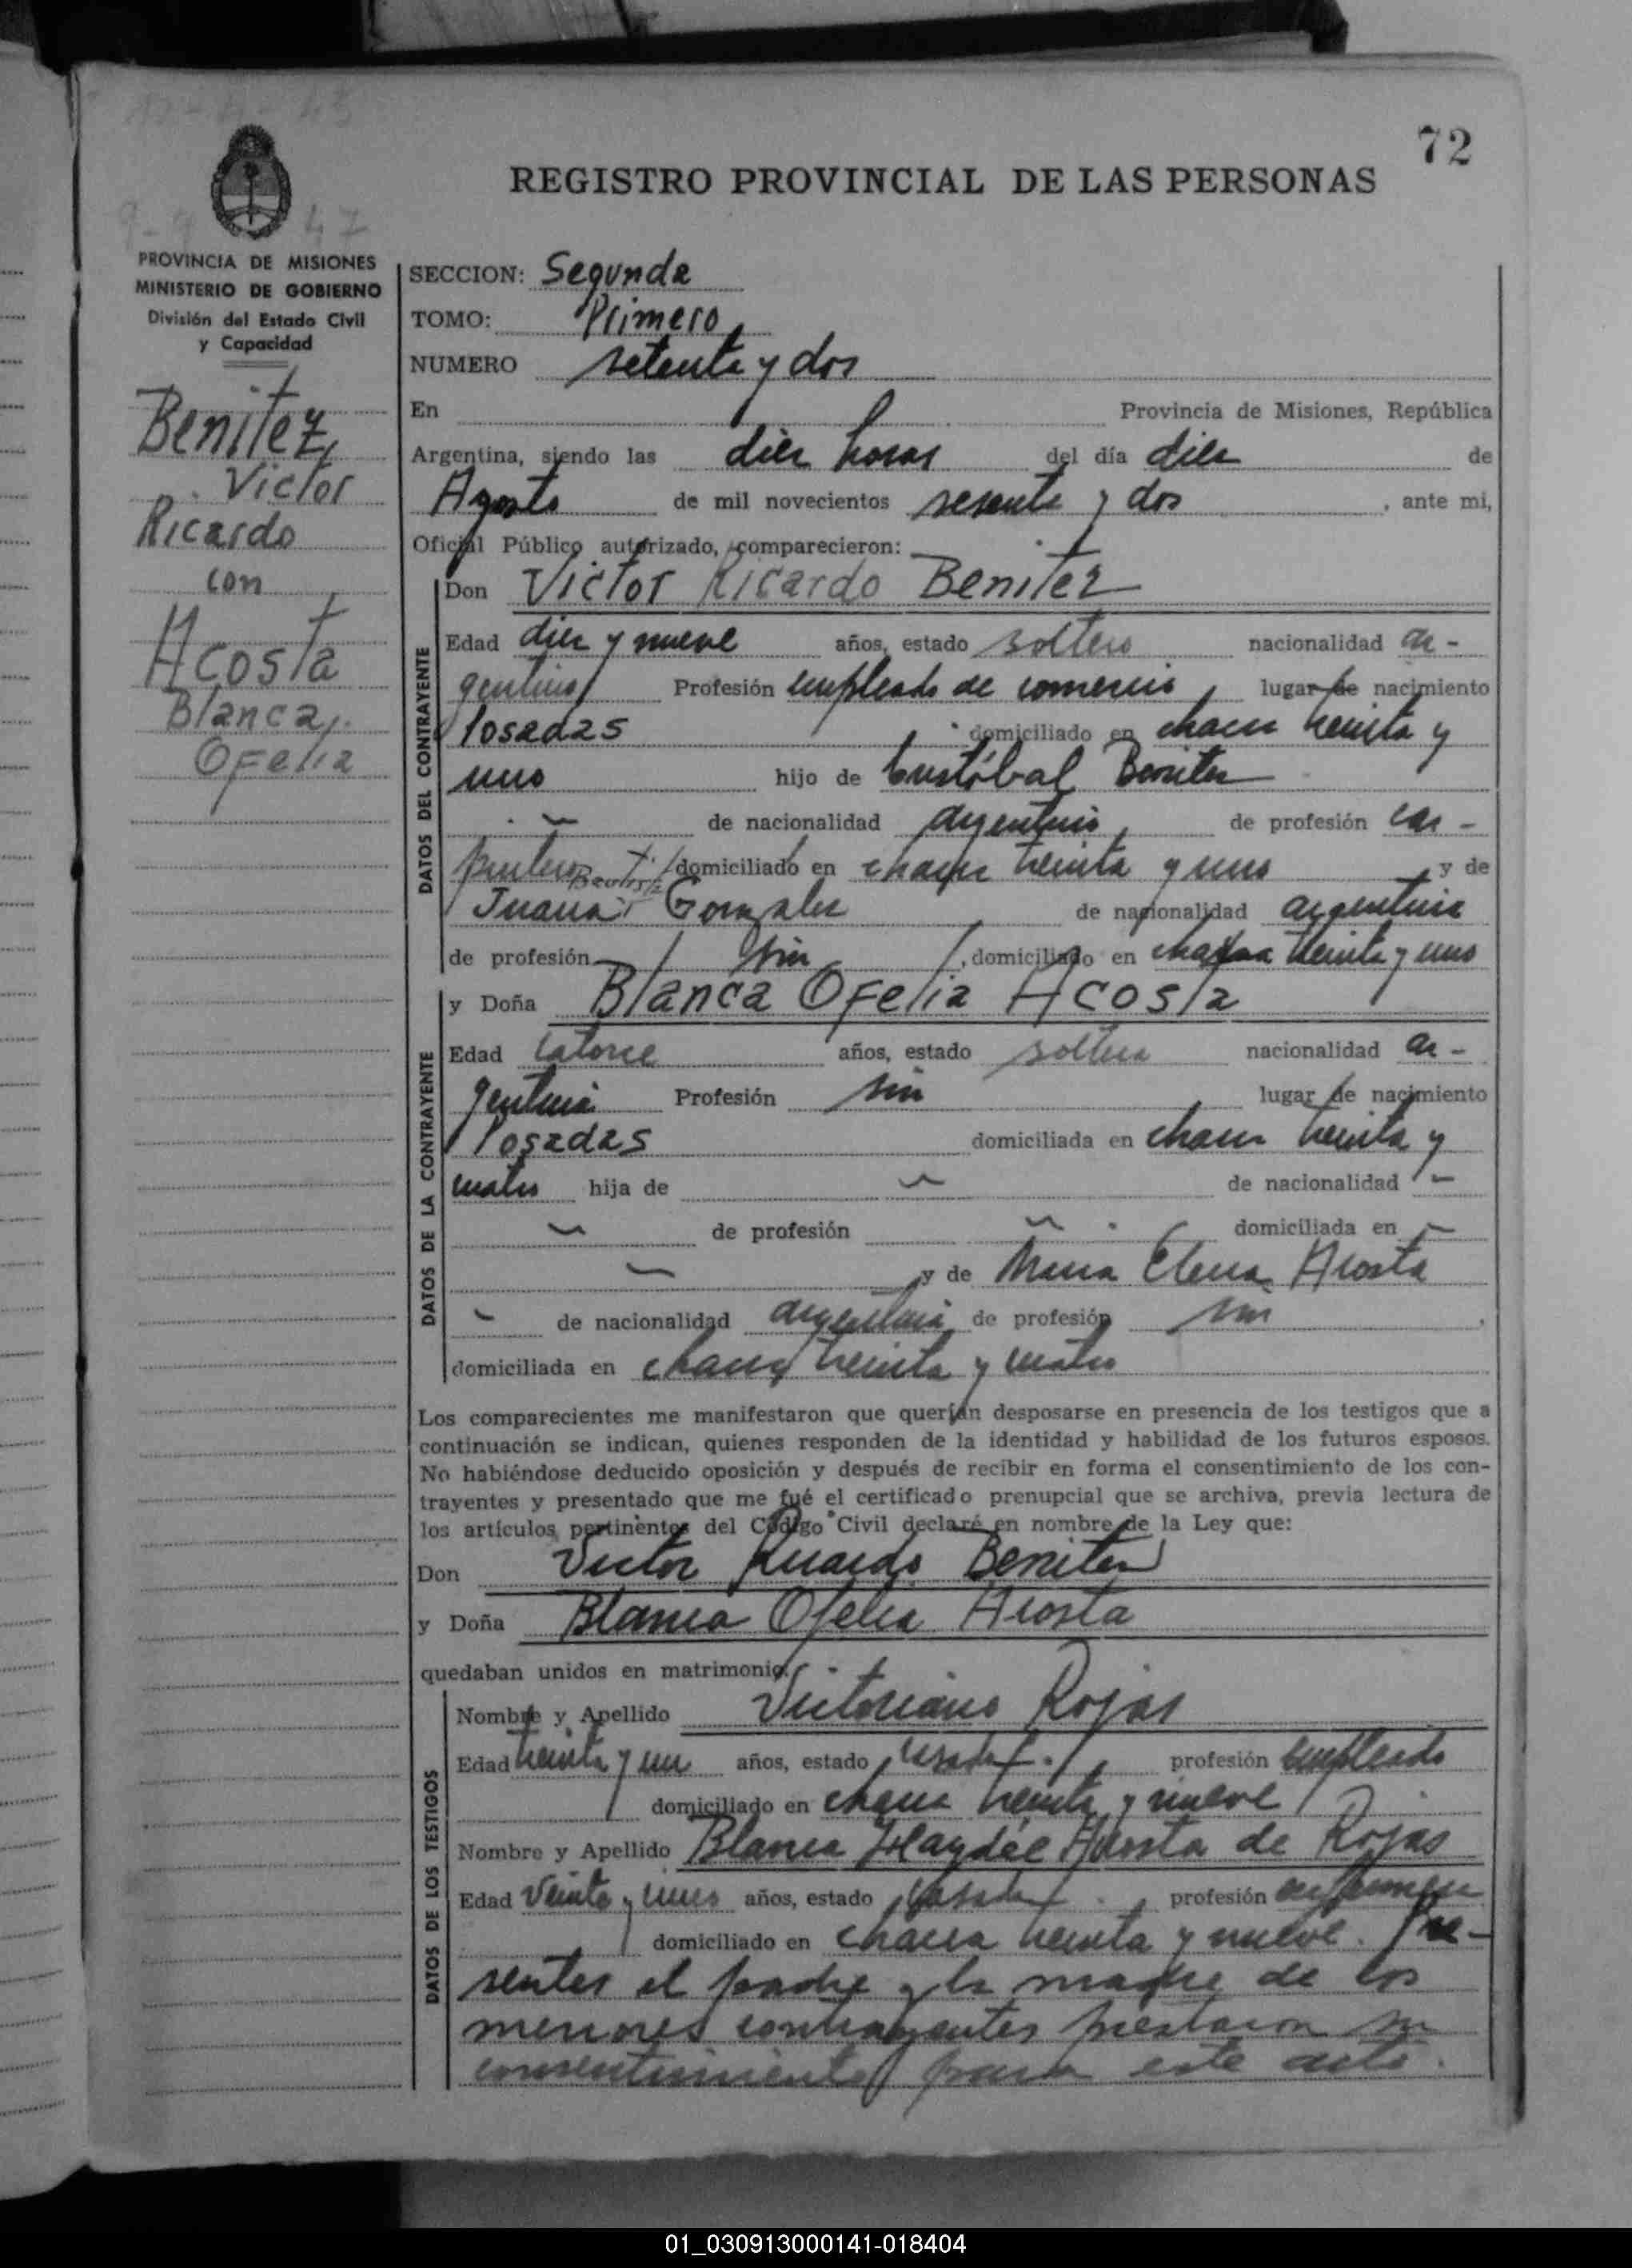 72
REGISTRO PROVINCIAL DE LAS PERSONAS
PROVINCIA DE MISIONES
MINISTERIO DE GOBIERNO
División del Estado Civil
y Capacidad
Benitez,
Victor
Ricardo
con
Acosta
Blanca
Ofelia
SECCION: Segunda
TOMO: Primero
NUMERO setenta y dos
En Provincia de Misiones, República
Argentina, siendo las diez horas del día diez de
Agosto de mil novecientos sesenta y dos, ante mi,
Oficial Público autorizado, comparecieron:
DATOS DEL CONTRAYENTE
Don Victor Ricardo Benitez
Edad diez y nueve años, estado soltero nacionalidad ar-
gentino Profesión empleado de comercio, lugar de nacimiento
Posadas domiciliado en chacra treinta y
uno hijo de Cristóbal Benitez
de nacionalidad argentino, de profesión car-
pintero domiciliado en chacra treinta y uno y de
Juana Bautista Gonzalez de nacionalidad argentina
de profesión sin, domiciliado en chacra treinta y uno
DATOS DE LA CONTRAYENTE
y Doña Blanca Ofelia Acosta
Edad catorce años, estado soltera nacionalidad ar-
gentina Profesión sin lugar de nacimiento
Posadas domiciliada en chacra treinta y
cuatro hija de - de nacionalidad -
- de profesión - domiciliada en -
- y de Maria Elena Acosta
- de nacionalidad argentina de profesión sin,
domiciliada en chacra treinta y cuatro
Los comparecientes me manifestaron que querían desposarse en presencia de los testigos que a
continuación se indican, quienes responden de la identidad y habilidad de los futuros esposos.
No habiéndose deducido oposición y después de recibir en forma el consentimiento de los con-
trayentes y presentado que me fué el certificado prenupcial que se archiva, previa lectura de
los artículos pertinentes del Código Civil declaré en nombre de la Ley que:
Don Victor Ricardo Benitez
y Doña Blanca Ofelia Acosta
quedaban unidos en matrimonio.
DATOS DE LOS TESTIGOS
Nombre y Apellido Victoriano Rojas
Edad treinta y un años, estado casado, profesión empleado
domiciliado en chacra treinta y nueve
Nombre y Apellido Blanca Haydée Acosta de Rojas
Edad veinte y uno años, estado casada, profesión enfermera
domiciliado en chacra treinta y nueve. Pre-
sentes el padre y la madre de los
menores contrayentes prestaron su
consentimiento para este acto.
01_030913000141-018404